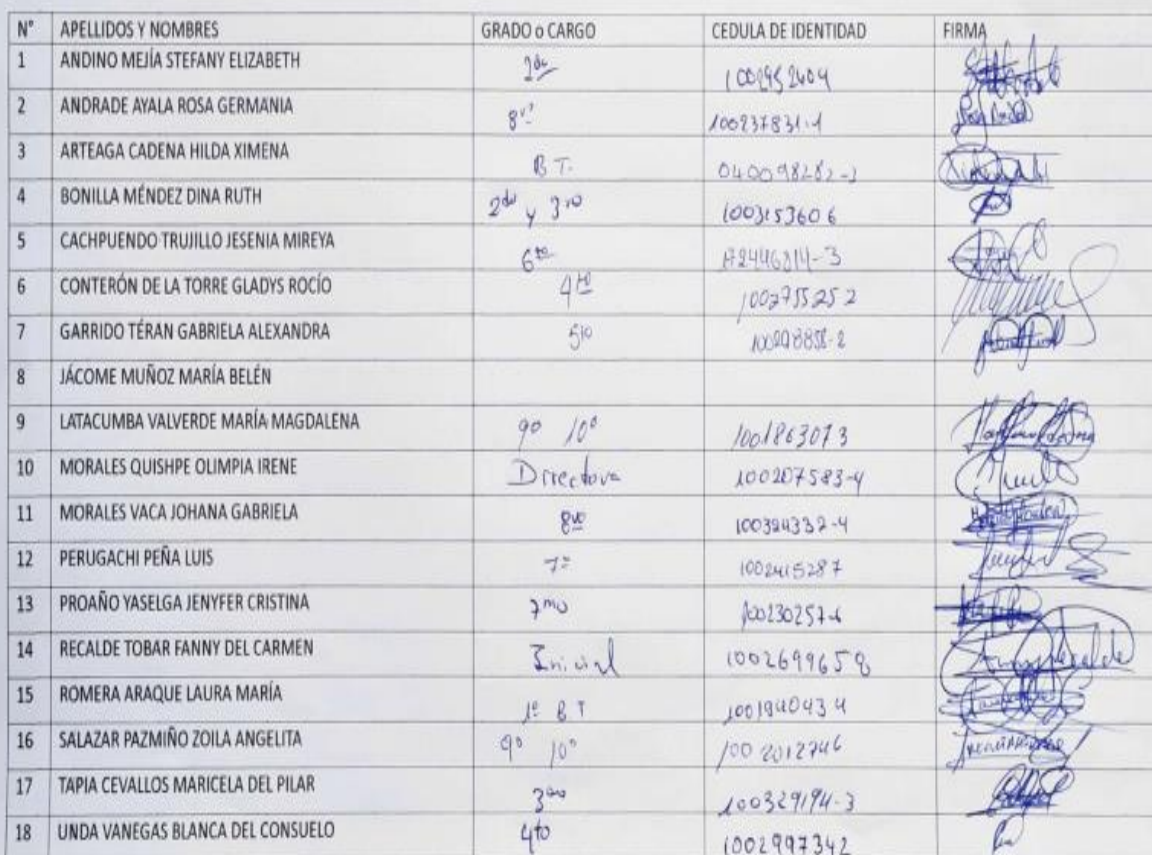 N° APELLIDOS Y NOMBRES GRADO o CARGO CEDULA DE IDENTIDAD FIRMA
1 ANDINO MEJÍA STEFANY ELIZABETH 2do 1002952404
2 ANDRADE AYALA ROSA GERMANIA 8vo 100237831-1
3 ARTEAGA CADENA HILDA XIMENA B T.
4 BONILLA MÉNDEZ DINA RUTH 2do y 3ro 1003153606
5 CACHPUENDO TRUJILLO JESENIA MIREYA 6to
6 CONTERÓN DE LA TORRE GLADYS ROCÍO 4to 1002755252
7 GARRIDO TÉRAN GABRIELA ALEXANDRA 5to
8 JÁCOME MUÑOZ MARÍA BELÉN
9 LATACUMBA VALVERDE MARÍA MAGDALENA 9º 10º 1001863073
10 MORALES QUISHPE OLIMPIA IRENE Directora 100207583-4
11 MORALES VACA JOHANA GABRIELA 8vo 100324332-4
12 PERUGACHI PEÑA LUIS 7º 1002415287
13 PROAÑO YASELGA JENYFER CRISTINA 7mo 100230257-6
14 RECALDE TOBAR FANNY DEL CARMEN Inicial 1002699658
15 ROMERA ARAQUE LAURA MARÍA 1º B T 1001940434
16 SALAZAR PAZMIÑO ZOILA ANGELITA 9º 10º 1002012746
17 TAPIA CEVALLOS MARICELA DEL PILAR 100329194-3
18 UNDA VANEGAS BLANCA DEL CONSUELO 4to 1002997342